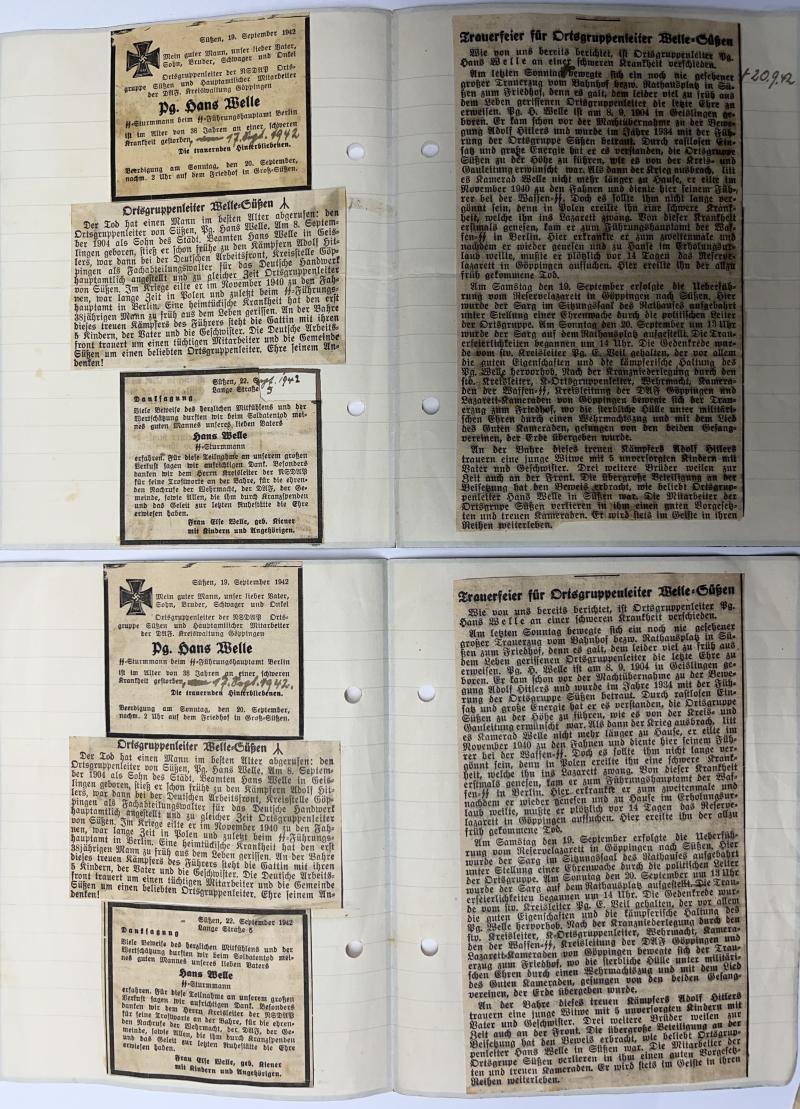 Süßen, 19. September 1942
Mein guter Mann, unser lieber Vater,
Sohn, Bruder, Schwager und Onkel
Ortsgruppenleiter der NSDAP Orts-
gruppe Süßen und Hauptamtlicher Mitarbeiter
der DAF. Kreiswaltung Göppingen
Pg. Hans Welle
SS-Sturmmann beim SS-Führungshauptamt Berlin
ist im Alter von 38 Jahren an einer schweren
Krankheit gestorben, am 17. Sept. 1942
Die trauernden Hinterbliebenen.
Beerdigung am Sonntag, den 20. September,
nachm. 2 Uhr auf dem Friedhof in Groß-Süßen.
Ortsgruppenleiter Welle-Süßen
Der Tod hat einen Mann im besten Alter abgerufen: den
Ortsgruppenleiter von Süßen, Pg. Hans Welle. Am 8. Septem-
ber 1904 als Sohn des Städt. Beamten Hans Welle in Geis-
lingen geboren, stieß er schon frühe zu den Kämpfern Adolf Hit-
lers, war dann bei der Deutschen Arbeitsfront, Kreisstelle Göp-
pingen als Fachabteilungswalter für das Deutsche Handwerk
hauptamtlich angestellt und zu gleicher Zeit Ortsgruppenleiter
von Süßen. Im Kriege eilte er im November 1940 zu den Fah-
nen, war lange Zeit in Polen und zuletzt beim SS-Führungs-
hauptamt in Berlin. Eine heimtückische Krankheit hat den erst
38jährigen Mann zu früh aus dem Leben gerissen. An der Bahre
dieses treuen Kämpfers des Führers steht die Gattin mit ihren
5 Kindern, der Vater und die Geschwister. Die Deutsche Arbeits-
front trauert um einen tüchtigen Mitarbeiter und die Gemeinde
Süßen um einen beliebten Ortsgruppenleiter. Ehre seinem An-
denken!
Süßen, 22. Sept. 1942
Lange Straße 5
Danksagung
Viele Beweise des herzlichen Mitfühlens und der
Wertschätzung durften wir beim Soldatentod mei-
nes guten Mannes unseres lieben Vaters
Hans Welle
SS-Sturmmann
erfahren. Für diese Teilnahme an unserem großen
Verlust sagen wir aufrichtigen Dank. Besonders
danken wir dem Herrn Kreisleiter der NSDAP
für seine Trostworte an der Bahre, für die ehren-
den Nachrufe der Wehrmacht, der DAF, der Ge-
meinde, sowie Allen, die ihm durch Kranzspenden
und das Geleit zur letzten Ruhestätte die Ehre
erwiesen haben.
Frau Else Welle, geb. Kiener
mit Kindern und Angehörigen.
Trauerfeier für Ortsgruppenleiter Welle-Süßen
Wie von uns bereits berichtet, ist Ortsgruppenleiter Pg.
Hans Welle an einer schweren Krankheit verschieden.
Am letzten Sonntag bewegte sich ein noch nie gesehener
großer Trauerzug vom Bahnhof bezw. Rathausplatz in Sü-
ßen zum Friedhof, denn es galt, dem leider viel zu früh aus
dem Leben gerissenen Ortsgruppenleiter die letzte Ehre zu
erweisen. Pg. H. Welle ist am 8. 9. 1904 in Geislingen ge-
boren. Er kam schon vor der Machtübernahme zu der Bewe-
gung Adolf Hitlers und wurde im Jahre 1934 mit der Füh-
rung der Ortsgruppe Süßen betraut. Durch rastlosen Ein-
satz und große Energie hat er es verstanden, die Ortsgruppe
Süßen zu der Höhe zu führen, wie es von der Kreis- und
Gauleitung erwünscht war. Als dann der Krieg ausbrach, litt
es Kamerad Welle nicht mehr länger zu Hause, er eilte im
November 1940 zu den Fahnen und diente hier seinem Füh-
rer bei der Waffen-SS. Doch es sollte ihm nicht lange ver-
gönnt sein, denn in Polen ereilte ihn eine schwere Krank-
heit, welche ihn ins Lazarett zwang. Von dieser Krankheit
erstmals genesen, kam er zum Führungshauptamt der Waf-
fen-SS in Berlin. Hier erkrankte er zum zweitenmale und
nachdem er wieder genesen und zu Hause im Erholungsur-
laub weilte, mußte er plötzlich vor 14 Tagen das Reserve-
lazarett in Göppingen aufsuchen. Hier ereilte ihn der allzu
früh gekommene Tod.
Am Samstag den 19. September erfolgte die Ueberfüh-
rung vom Reservelazarett in Göppingen nach Süßen. Hier
wurde der Sarg im Sitzungssaal des Rathauses aufgebahrt
unter Stellung einer Ehrenwache durch die politischen Leiter
der Ortsgruppe. Am Sonntag den 20. September um 13 Uhr
wurde der Sarg auf dem Rathausplatz aufgestellt. Die Trau-
erfeierlichkeiten begannen um 14 Uhr. Die Gedenkrede wur-
de vom stv. Kreisleiter Pg. E. Veil gehalten, der vor allem
die guten Eigenschaften und die kämpferische Haltung des
Pg. Welle hervorhob. Nach der Kranzniederlegung durch den
stv. Kreisleiter, K-Ortsgruppenleiter, Wehrmacht, Kamera-
den der Waffen-SS, Kreisleitung der DAF Göppingen und
Lazarett-Kameraden von Göppingen bewegte sich der Trau-
erzug zum Friedhof, wo die sterbliche Hülle unter militäri-
schen Ehren durch einen Wehrmachtszug und mit dem Lied
des Guten Kameraden, gesungen von den beiden Gesang-
vereinen, der Erde übergeben wurde.
An der Bahre dieses treuen Kämpfers Adolf Hitlers
trauern eine junge Witwe mit 5 unversorgten Kindern mit
Vater und Geschwister. Drei weitere Brüder weilen zur
Zeit auch an der Front. Die übergroße Beteiligung an der
Beisetzung hat den Beweis erbracht, wie beliebt Ortsgrup-
penleiter Hans Welle in Süßen war. Die Mitarbeiter der
Ortsgrupe Süßen verlieren in ihm einen guten Vorgesetz-
ten und treuen Kameraden. Er wird stets im Geiste in ihren
Reihen weiterleben.
+ 20.9.42
Süßen, 19. September 1942
Mein guter Mann, unser lieber Vater,
Sohn, Bruder, Schwager und Onkel
Ortsgruppenleiter der NSDAP Orts-
gruppe Süßen und Hauptamtlicher Mitarbeiter
der DAF. Kreiswaltung Göppingen
Pg. Hans Welle
SS-Sturmmann beim SS-Führungshauptamt Berlin
ist im Alter von 38 Jahren an einer schweren
Krankheit gestorben, am 17. Sept. 1942.
Die trauernden Hinterbliebenen.
Beerdigung am Sonntag, den 20. September,
nachm. 2 Uhr auf dem Friedhof in Groß-Süßen.
Ortsgruppenleiter Welle-Süßen
Der Tod hat einen Mann im besten Alter abgerufen: den
Ortsgruppenleiter von Süßen, Pg. Hans Welle. Am 8. Septem-
ber 1904 als Sohn des Städt. Beamten Hans Welle in Geis-
lingen geboren, stieß er schon frühe zu den Kämpfern Adolf Hit-
lers, war dann bei der Deutschen Arbeitsfront, Kreisstelle Göp-
pingen als Fachabteilungswalter für das Deutsche Handwerk
hauptamtlich angestellt und zu gleicher Zeit Ortsgruppenleiter
von Süßen. Im Kriege eilte er im November 1940 zu den Fah-
nen, war lange Zeit in Polen und zuletzt beim SS-Führungs-
hauptamt in Berlin. Eine heimtückische Krankheit hat den erst
38jährigen Mann zu früh aus dem Leben gerissen. An der Bahre
dieses treuen Kämpfers des Führers steht die Gattin mit ihren
5 Kindern, der Vater und die Geschwister. Die Deutsche Arbeits-
front trauert um einen tüchtigen Mitarbeiter und die Gemeinde
Süßen um einen beliebten Ortsgruppenleiter. Ehre seinem An-
denken!
Süßen, 22. September 1942
Lange Straße 5
Danksagung
Viele Beweise des herzlichen Mitfühlens und der
Wertschätzung durften wir beim Soldatentod mei-
nes guten Mannes unseres lieben Vaters
Hans Welle
SS-Sturmmann
erfahren. Für diese Teilnahme an unserem großen
Verlust sagen wir aufrichtigen Dank. Besonders
danken wir dem Herrn Kreisleiter der NSDAP
für seine Trostworte an der Bahre, für die ehren-
den Nachrufe der Wehrmacht, der DAF, der Ge-
meinde, sowie Allen, die ihm durch Kranzspenden
und das Geleit zur letzten Ruhestätte die Ehre
erwiesen haben.
Frau Else Welle, geb. Kiener
mit Kindern und Angehörigen.
Trauerfeier für Ortsgruppenleiter Welle-Süßen
Wie von uns bereits berichtet, ist Ortsgruppenleiter Pg.
Hans Welle an einer schweren Krankheit verschieden.
Am letzten Sonntag bewegte sich ein noch nie gesehener
großer Trauerzug vom Bahnhof bezw. Rathausplatz in Sü-
ßen zum Friedhof, denn es galt, dem leider viel zu früh aus
dem Leben gerissenen Ortsgruppenleiter die letzte Ehre zu
erweisen. Pg. H. Welle ist am 8. 9. 1904 in Geislingen ge-
boren. Er kam schon vor der Machtübernahme zu der Bewe-
gung Adolf Hitlers und wurde im Jahre 1934 mit der Füh-
rung der Ortsgruppe Süßen betraut. Durch rastlosen Ein-
satz und große Energie hat er es verstanden, die Ortsgruppe
Süßen zu der Höhe zu führen, wie es von der Kreis- und
Gauleitung erwünscht war. Als dann der Krieg ausbrach, litt
es Kamerad Welle nicht mehr länger zu Hause, er eilte im
November 1940 zu den Fahnen und diente hier seinem Füh-
rer bei der Waffen-SS. Doch es sollte ihm nicht lange ver-
gönnt sein, denn in Polen ereilte ihn eine schwere Krank-
heit, welche ihn ins Lazarett zwang. Von dieser Krankheit
erstmals genesen, kam er zum Führungshauptamt der Waf-
fen-SS in Berlin. Hier erkrankte er zum zweitenmale und
nachdem er wieder genesen und zu Hause im Erholungsur-
laub weilte, mußte er plötzlich vor 14 Tagen das Reserve-
lazarett in Göppingen aufsuchen. Hier ereilte ihn der allzu
früh gekommene Tod.
Am Samstag den 19. September erfolgte die Ueberfüh-
rung vom Reservelazarett in Göppingen nach Süßen. Hier
wurde der Sarg im Sitzungssaal des Rathauses aufgebahrt
unter Stellung einer Ehrenwache durch die politischen Leiter
der Ortsgruppe. Am Sonntag den 20. September um 13 Uhr
wurde der Sarg auf dem Rathausplatz aufgestellt. Die Trau-
erfeierlichkeiten begannen um 14 Uhr. Die Gedenkrede wur-
de vom stv. Kreisleiter Pg. E. Veil gehalten, der vor allem
die guten Eigenschaften und die kämpferische Haltung des
Pg. Welle hervorhob. Nach der Kranzniederlegung durch den
stv. Kreisleiter, K-Ortsgruppenleiter, Wehrmacht, Kamera-
den der Waffen-SS, Kreisleitung der DAF Göppingen und
Lazarett-Kameraden von Göppingen bewegte sich der Trau-
erzug zum Friedhof, wo die sterbliche Hülle unter militäri-
schen Ehren durch einen Wehrmachtszug und mit dem Lied
des Guten Kameraden, gesungen von den beiden Gesang-
vereinen, der Erde übergeben wurde.
An der Bahre dieses treuen Kämpfers Adolf Hitlers
trauern eine junge Witwe mit 5 unversorgten Kindern mit
Vater und Geschwister. Drei weitere Brüder weilen zur
Zeit auch an der Front. Die übergroße Beteiligung an der
Beisetzung hat den Beweis erbracht, wie beliebt Ortsgrup-
penleiter Hans Welle in Süßen war. Die Mitarbeiter der
Ortsgrupe Süßen verlieren in ihm einen guten Vorgesetz-
ten und treuen Kameraden. Er wird stets im Geiste in ihren
Reihen weiterleben.